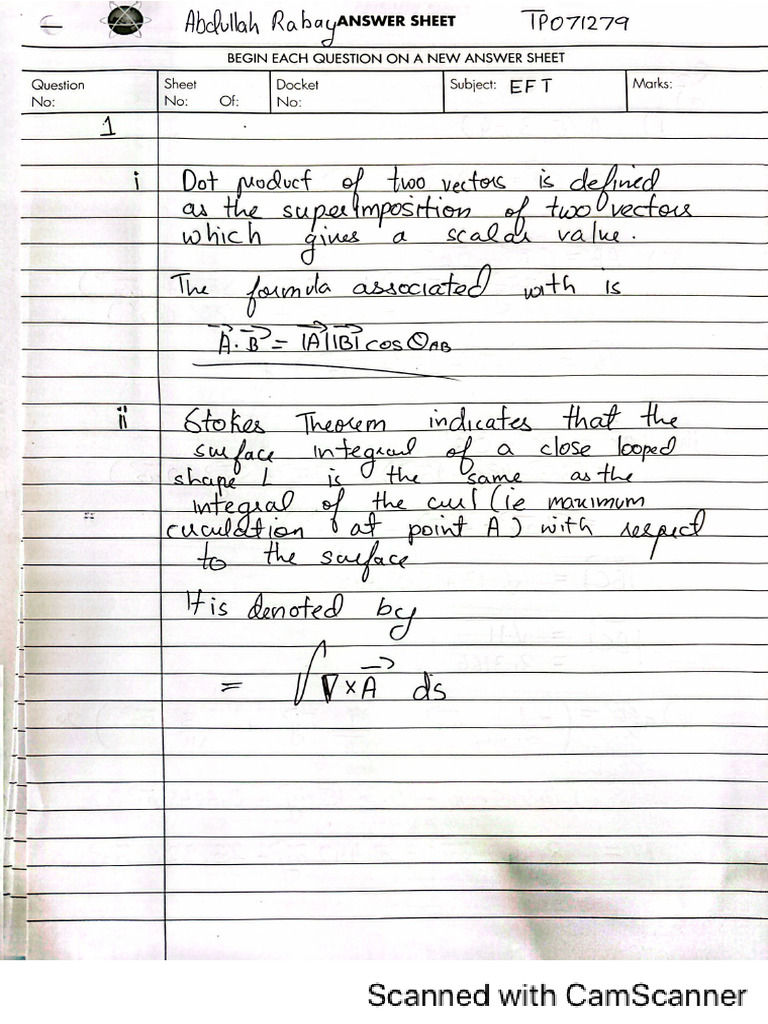 Abdullah Rabay ANSWER SHEET TP071279
BEGIN EACH QUESTION ON A NEW ANSWER SHEET
Question No: Sheet No: Of: Docket No: Subject: EFT Marks:
1
i Dot product of two vectors is defined
as the superimposition of two vectors
which gives a scalar value.
The formula associated with is
A⃗·B⃗ = |A⃗||B⃗| cos θAB
ii Stokes Theorem indicates that the
surface integral of a close looped
shape L is the same as the
integral of the curl (ie maximum
circulation at point A) with respect
to the surface
It is denoted by
= ∫ ∇ × A⃗ ds
Scanned with CamScanner